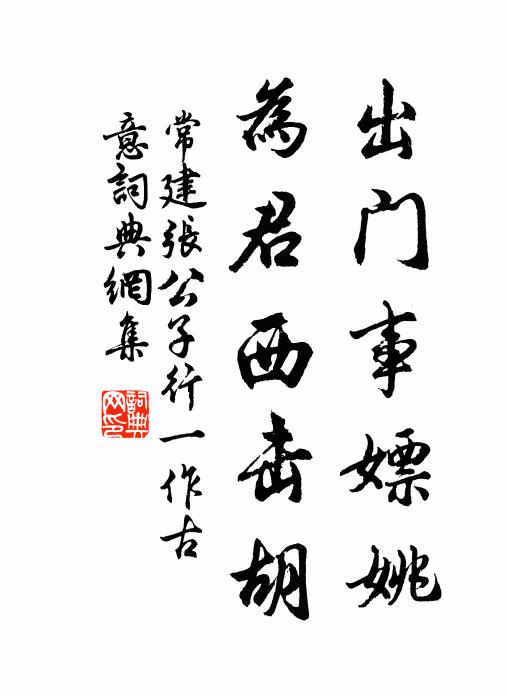 出门事嫖姚
為君西击胡
常建張公子行一作古
意詞典網集
詞典网印